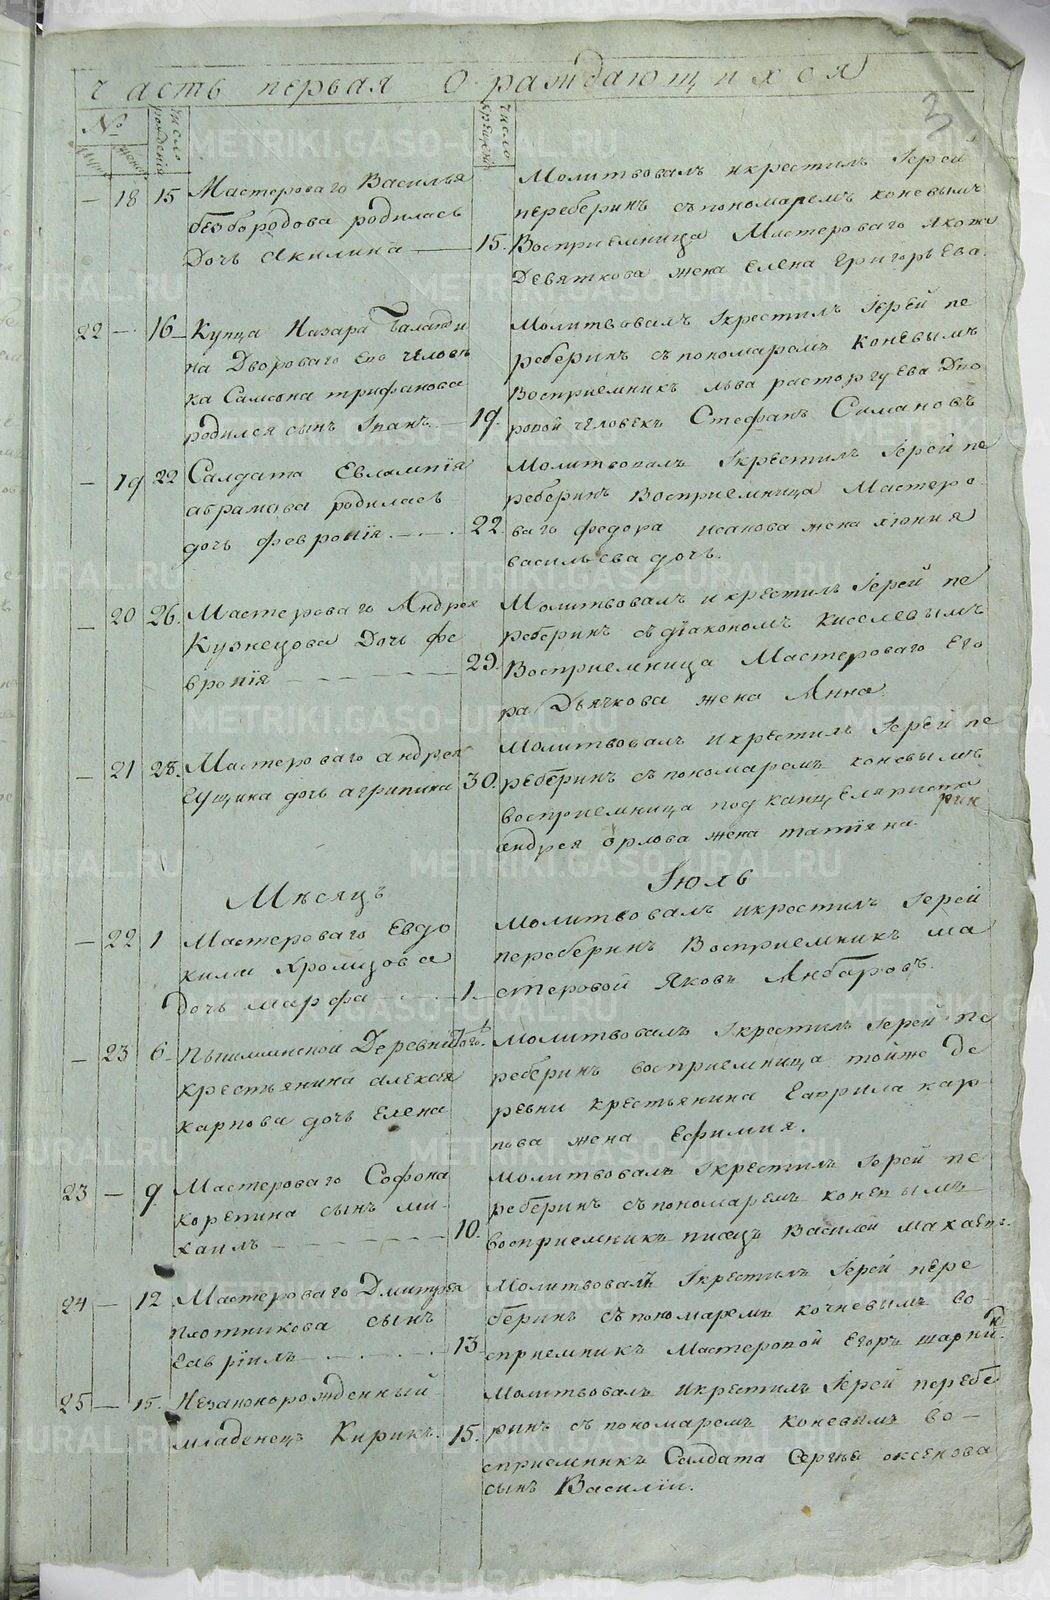 Часть первая О раждающихся
3
№
Число рождения
Число крещения
— 18 15 Мастероваго Василья
безбородова родилась
Дочь Акилина — 15.
Молитвовалъ и крестилъ Iерей
переберинъ съ пономаремъ коневымъ
Восприемница Мастероваго Якова
Девяткова жена Елена Григорьева.
22 — 16 Купца Назара Баланди
на Двороваго Его человѣ
ка Самсона трифанова
родился сынъ Iванъ — 19.
Молитвовалъ Iкрестилъ Iерей пе
реберинъ съ пономаремъ Коневымъ
Восприемникъ льва расторгуева Дво
ровой человекъ Стефанъ Симановъ
— 19 22 Салдата Евлампiя
абрамова родилась
дочь февронiя — 22.
Молитвовалъ Iкрестилъ Iерей пе
реберинъ Восприемница Мастеро
ваго федора исакова жена
васильева дочь.
— 20 26. Мастероваго Андрея
Кузнецова Дочь фе
вронiя — 29.
Молитвовалъ и крестилъ Iерей пе
реберинъ съ дiакономъ Киселевымъ
Восприемница Мастероваго Его
ра Дьячкова жена Анна
— 21 28. Мастероваго андрея
Еущина дочь агрипина 30.
Молитвовалъ и крестилъ Iерей пе
реберинъ съ пономаремъ коневымъ
восприемница под канцеляриста
андрея орлова жена татiяна.
Мѣсяцъ Iюль
— 22 1 Мастероваго Евдо
кима Хромцова
дочь марфа — 1.
Молитвовалъ и крестилъ Iерей
переберинъ Восприемникъ ма
стеровой Яковъ Анбаровъ.
— 23 6 Пышминской Деревни
крестьянина алексея
карпова дочь Елена
Молитвовалъ Iкрестилъ Iерей пе
реберинъ восприемница тойже де
ревни крестьянина Гаврила кар
пова жена Ефимия.
23 — 9 Мастероваго Софона
корепина сынъ ми
хаилъ — 10.
Молитвовалъ Iкрестилъ Iерей пе
реберинъ съ пономаремъ коневымъ
восприемникъ писецъ Василей
24 — 12 Мастероваго Дмитрея
плотникова сынъ
Гаврiилъ — 13
Молитвовалъ Iкрестилъ Iерей пере
беринъ съ пономаремъ кочневымъ во
сприемникъ Мастеровой Егоръ
25 — 15. Незаконорожденный
младенецъ Кирикъ. 15.
Молитвовалъ и крестилъ Iерей перебе
ринъ съ пономаремъ коневымъ во—
сприемникъ Салдата Сергѣя оксенова
сынъ Василiи.
METRIKI.GASO-URAL.RU